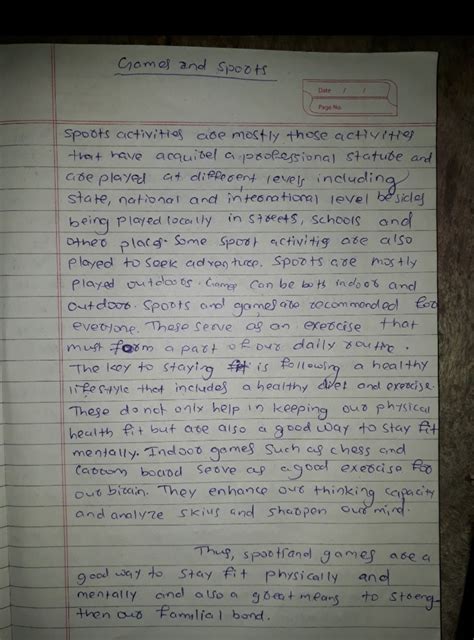 Games and Sports
Date / /
Page No.
Sports activities are mostly those activities
that have acquired a professional stature and
are played at different levels including
state, national and international level besides
being played locally in streets, schools and
other places. Some sport activities are also
played to seek adventure. Sports are mostly
played outdoors. Games can be both indoor and
outdoor. Sports and games are recommended for
everyone. These serve as an exercise that
must form a part of our daily routine.
The key to staying fit is following a healthy
lifestyle that includes a healthy diet and exercise.
These do not only help in keeping our physical
health fit but are also a good way to stay fit
mentally. Indoor games such as chess and
carrom board serve as a good exercise for
our brain. They enhance our thinking capacity
and analyze skills and sharpen our mind.
Thus, sports and games are a
good way to stay fit physically and
mentally and also a great means to streng-
then our familial bond.